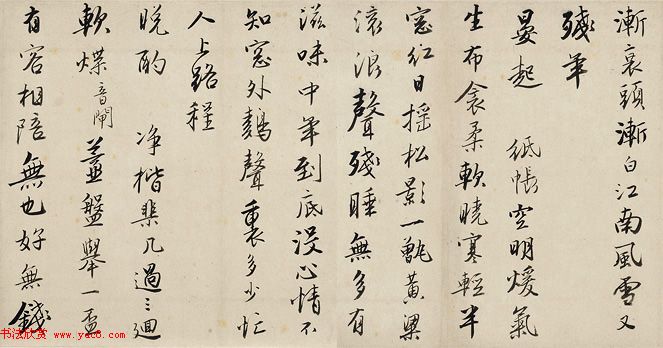 漸衰頭漸白江南風雪又
殘年
晏起　紙帳空明煖氣
生布衾柔軟曉寒輕半
窓紅日搖松影一甑黃粱
滾浪聲殘睡無多有
滋味中年到底沒心情不
知窓外鷄聲裏多少忙
人上路程
晚酌　净楷棐几過三廻
軟煠音閘薑盤舉一盃
有客相陪無也好無錢
书法欣赏
www.yac8.com